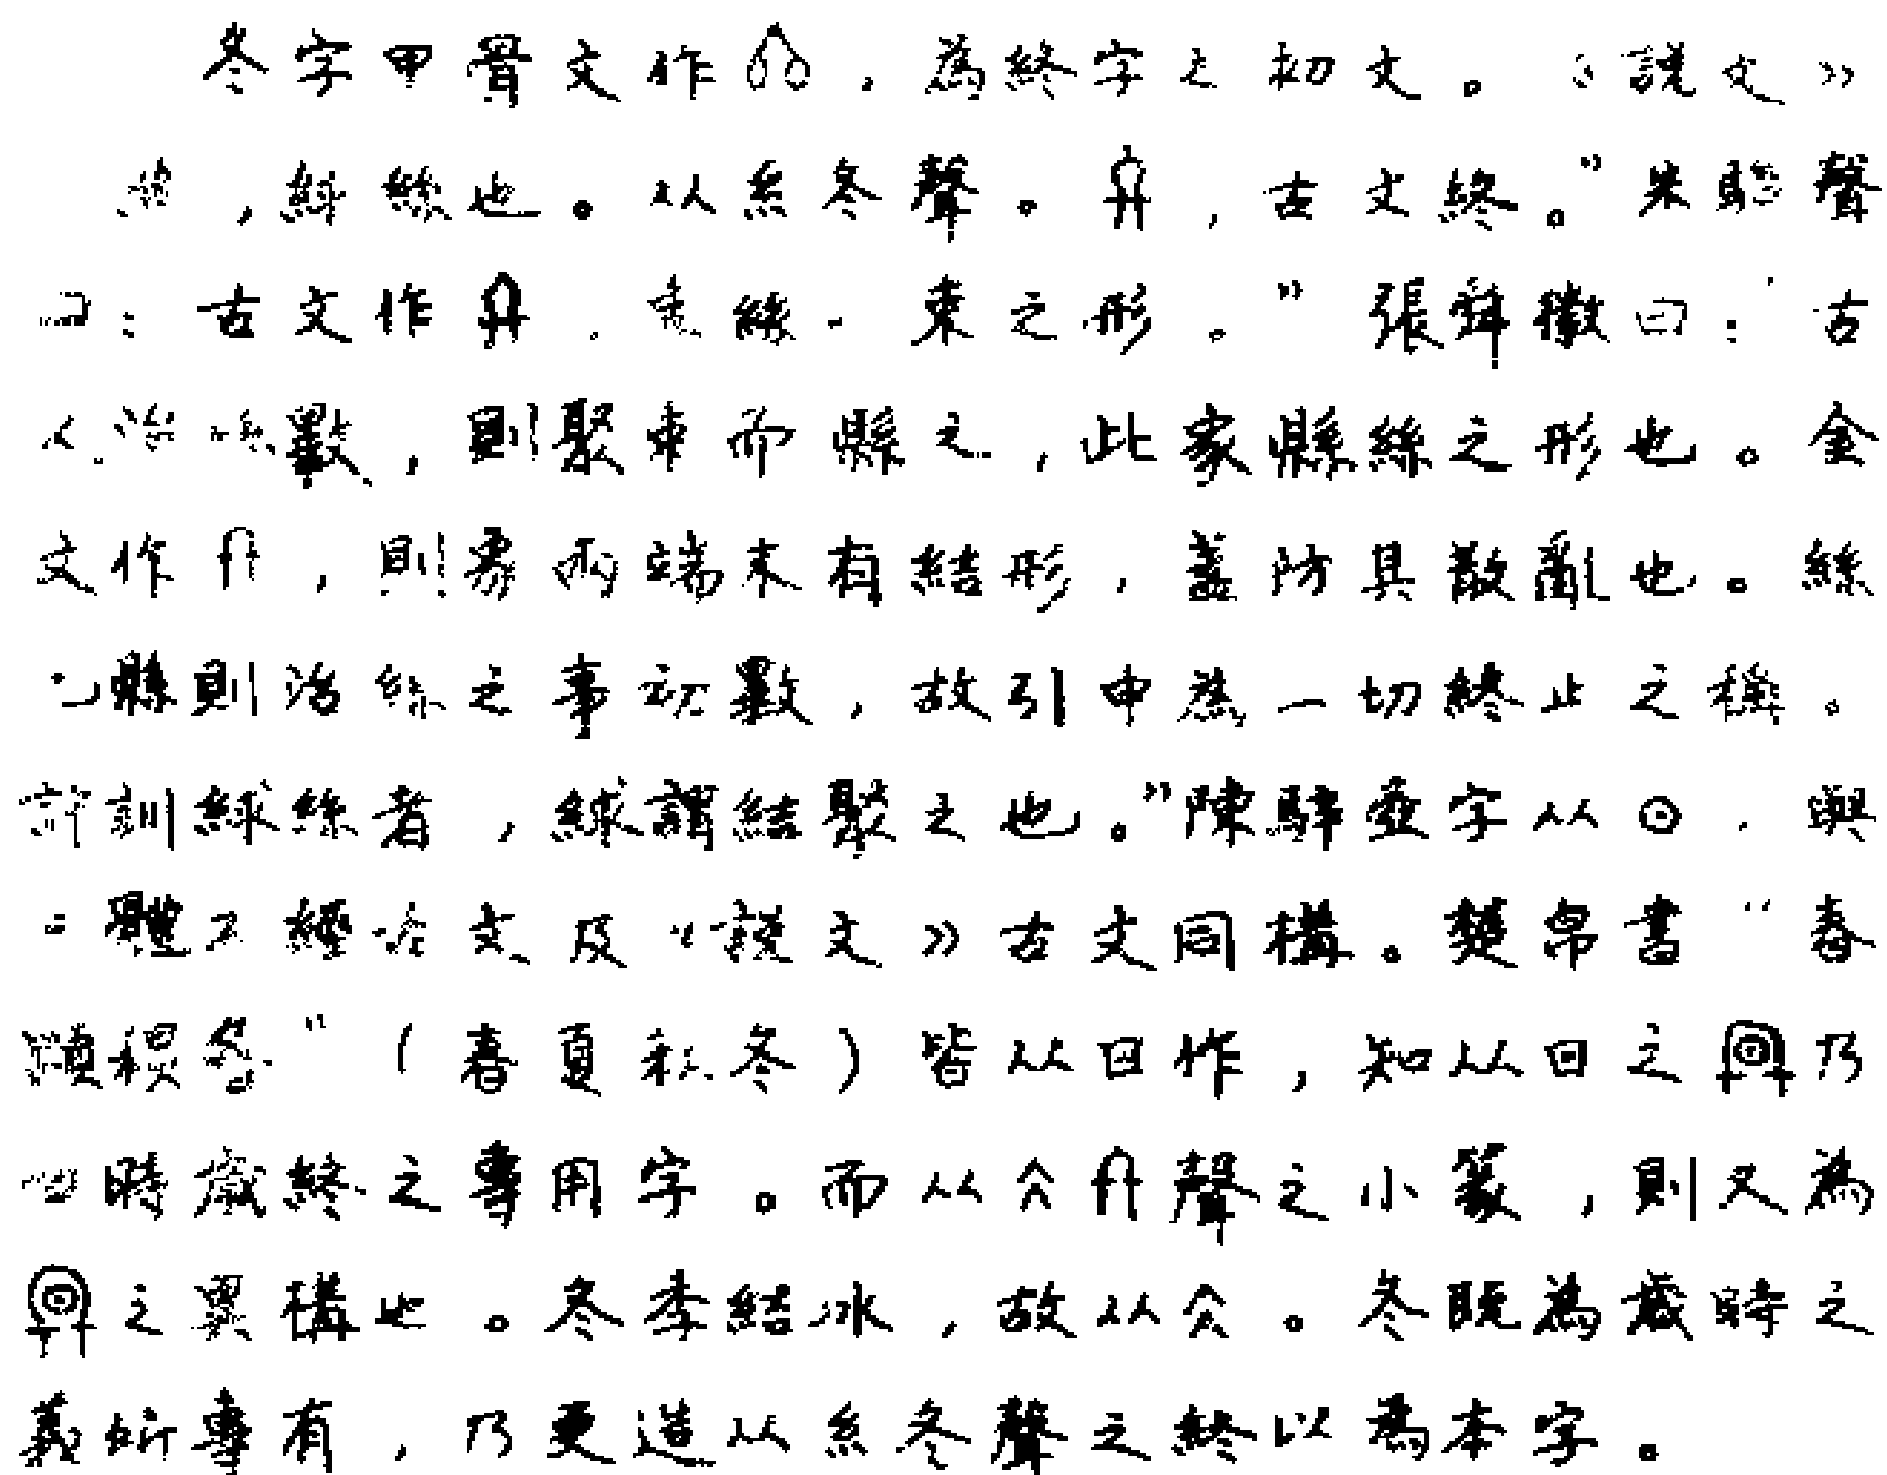 冬字甲骨文作，為終字之初文。《說文》
，絿絲也。从糸冬聲。，古文終。”朱駿聲
曰：古文作，束絲一束之形。”張舜徽曰：“古
人治絲數，則聚束而縣之，此象縣絲之形也。金
文作，則象兩端末有結形，蓋防其散亂也。絲
已縣則治絲之事初數，故引申為一切終止之稱。
許訓絿絲者，絿謂結聚之也。”陳騂壺字从⊙，與
三體石經古文及《說文》古文同構。楚帛書“春
”（春夏秋冬）皆从日作，知从日之乃
四時歲終之專用字。而从仌聲之小篆，則又為
之異構也。冬季結冰，故从仌。冬既為歲時之
義所專有，乃更造从糸冬聲之終以為本字。